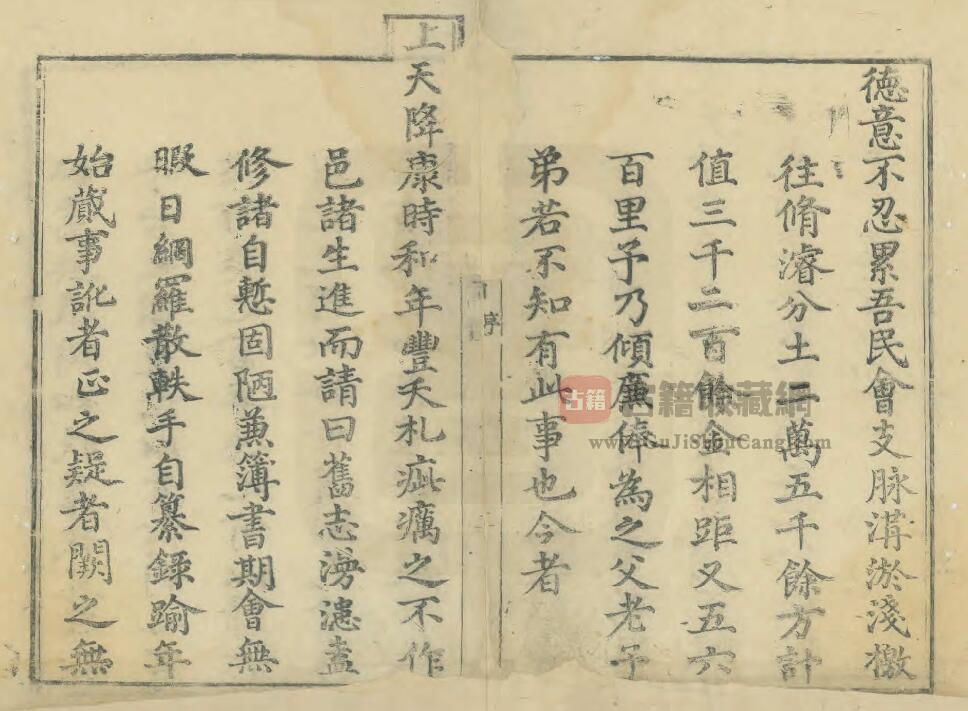 德意不忍累吾民會支脉溝淤淺檄
往脩濬分土二萬五千餘方計
值三千二百餘金相距又五六
百里予乃傾廉俸為之父老子
弟若不知有此事也今者
序
上天降康時和年豐夭札疵癘之不作
邑諸生進而請曰舊志漫漶盍
修諸自慙固陋兼簿書期會無
暇日網羅散軼手自纂錄踰年
始蕆事訛者正之疑者闕之無
古籍
古籍收藏網
www.GuJiShouCang.com